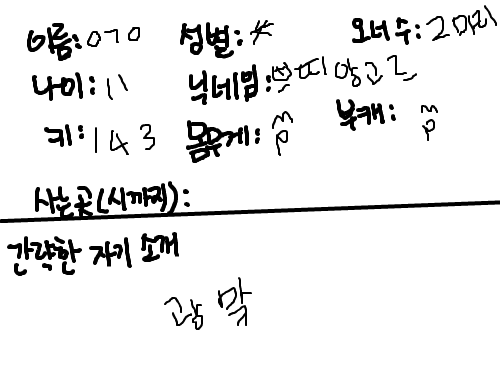 이름: 이기이 성별: 오너 수: 2마리
나이: 11 닉네임: 쁘띠앙고르
키: 143 몸무게: 부캐:
사는곳(시까지):
간략한 자기 소개
광막